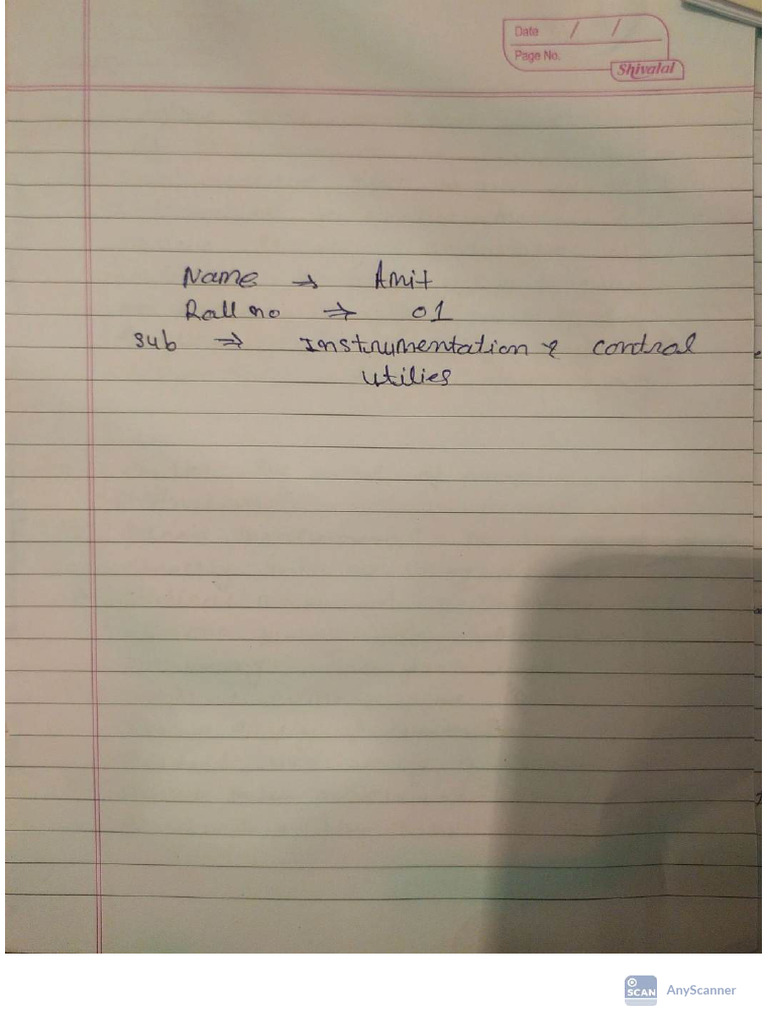 Date / /
Page No.
Shivalal
Name → Amit
Roll no ⇒ 01
Sub ⇒ Instrumentation & control
utilies
SCAN AnyScanner